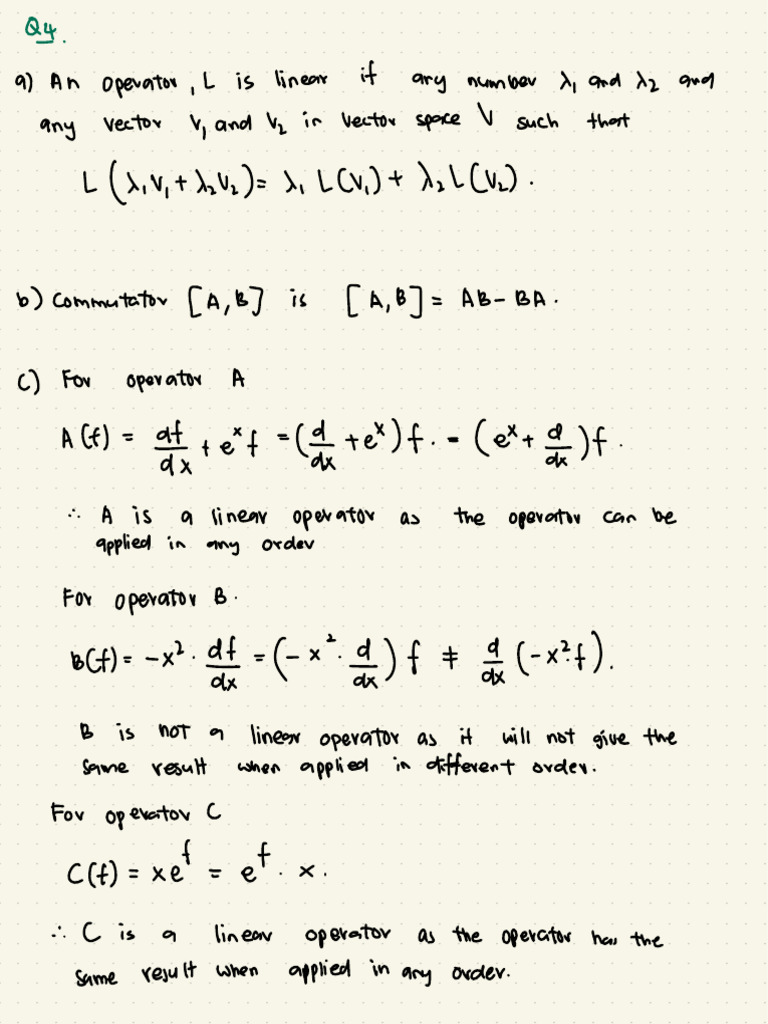 Q4.
a) An operator, L is linear if any number λ₁ and λ₂ and
any vector v₁ and v₂ in vector space V such that
L(λ₁v₁ + λ₂v₂) = λ₁ L(v₁) + λ₂ L(v₂).
b) Commutator [A, B] is [A, B] = AB - BA.
c) For operator A
A(f) = df/dx + eˣf = (d/dx + eˣ)f. = (eˣ + d/dx)f.
∴ A is a linear operator as the operator can be
applied in any order
For operator B.
B(f) = -x² · df/dx = (-x² · d/dx) f ≠ d/dx (-x²·f).
B is not a linear operator as it will not give the
same result when applied in different order.
For operator C
C(f) = xeᶠ = eᶠ · x.
∴ C is a linear operator as the operator has the
same result when applied in any order.